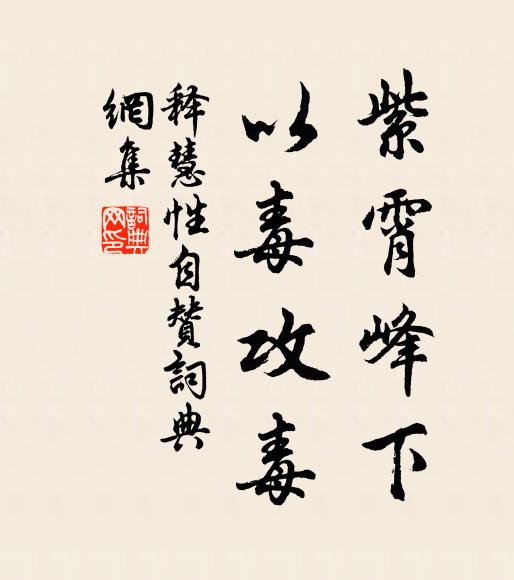 紫霄峰下
以毒攻毒
释慧性自赞词典
網集
詞典網印